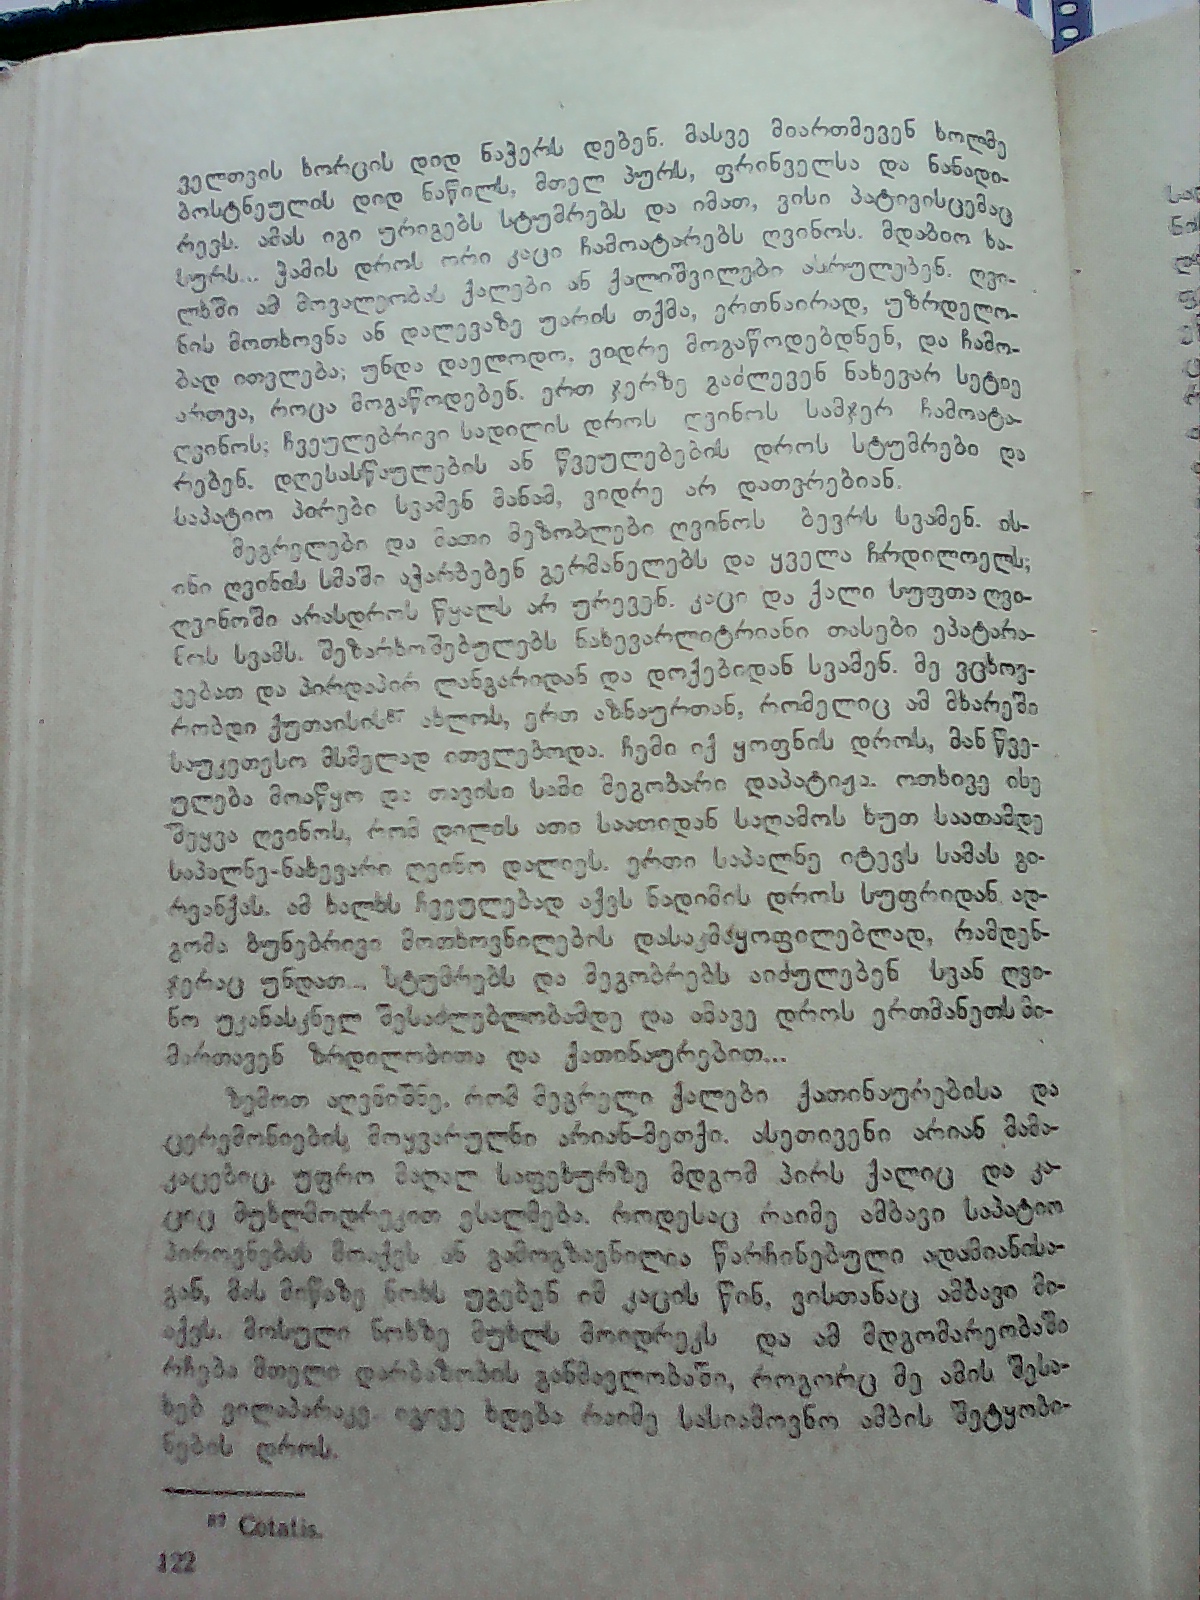 ველთვის ხორცის დიდ ნაჭერს დებენ. მასვე მიართმევენ ხოლმე
ბოსტნეულის დიდ ნაწილს, მთელ პურს, ფრინველსა და ნანადი-
რევს. ამას იგი ურიგებს სტუმრებს და იმათ, ვისი პატივისცემაც
სურს... ჭამის დროს ორი კაცი ჩამოატარებს ღვინოს. მდაბიო ხა-
ლხში ამ მოვალეობას ქალები ან ქალიშვილები ასრულებენ. ღვი-
ნის მოთხოვნა ან დალევაზე უარის თქმა, ერთნაირად, უზრდელო-
ბად ითვლება; უნდა დაელოდო, ვიდრე მოგაწოდებდნენ, და ჩამო-
ართვა, როცა მოგაწოდებენ. ერთ ჯერზე გაძლევენ ნახევარ სეტიე
ღვინოს; ჩვეულებრივი სადილის დროს ღვინოს სამჯერ ჩამოატა-
რებენ. დღესასწაულების ან წვეულებების დროს სტუმრები და
საპატიო პირები სვამენ მანამ, ვიდრე არ დათვრებიან.
მეგრელები და მათი მეზობლები ღვინოს ბევრს სვამენ. ის-
ინი ღვინის სმაში აჭარბებენ გერმანელებს და ყველა ჩრდილოელს;
ღვინოში არასდროს წყალს არ ურევენ. კაცი და ქალი სუფთა ღვი-
ნოს სვამს. შეზარხოშებულებს ნახევარლიტრიანი თასები ეპატარა-
ვებათ და პირდაპირ ლანგარიდან და დოქებიდან სვამენ. მე ვცხოვ-
რობდი ქუთაისის⁸⁷ ახლოს, ერთ აზნაურთან, რომელიც ამ მხარეში
საუკეთესო მსმელად ითვლებოდა. ჩემი იქ ყოფნის დროს, მან წვე-
ულება მოაწყო და თავისი სამი მეგობარი დაპატიჟა. ოთხივე ისე
შეყვა ღვინოს, რომ დილის ათი საათიდან საღამოს ხუთ საათამდე
საპალნე-ნახევარი ღვინო დალიეს. ერთი საპალნე იტევს სამას გი-
რვანქას. ამ ხალხს ჩვეულებად აქვს ნადიმის დროს სუფრიდან ად-
გომა ბუნებრივი მოთხოვნილების დასაკმაყოფილებლად, რამდენ-
ჯერაც უნდათ... სტუმრებს და მეგობრებს აიძულებენ სვან ღვი-
ნო უკანასკნელ შესაძლებლობამდე და ამავე დროს ერთმანეთს მი-
მართავენ ზრდილობითა და ქათინაურებით...
ზემოთ აღვნიშნე, რომ მეგრელი ქალები ქათინაურებისა და
ცერემონიების მოყვარულნი არიან-მეთქი. ასეთივენი არიან მამა-
კაცებიც. უფრო მაღალ საფეხურზე მდგომ პირს ქალიც და კა-
ციც მუხლმოდრეკით ესალმება. როდესაც რაიმე ამბავი საპატიო
პიროვნებას მოაქვს ან გამოგზავნილია წარჩინებული ადამიანისა-
გან, მას მიწაზე ნოხს უგებენ იმ კაცის წინ, ვისთანაც ამბავი მი-
აქვს. მოსული ნოხზე მუხლს მოიდრეკს და ამ მდგომარეობაში
რჩება მთელი დარბაზობის განმავლობაში, როგორც მე ამის შესა-
ხებ ვილაპარაკე. იგივე ხდება რაიმე სასიამოვნო ამბის შეტყობი-
ნების დროს.
⁸⁷ Cotatis.
122